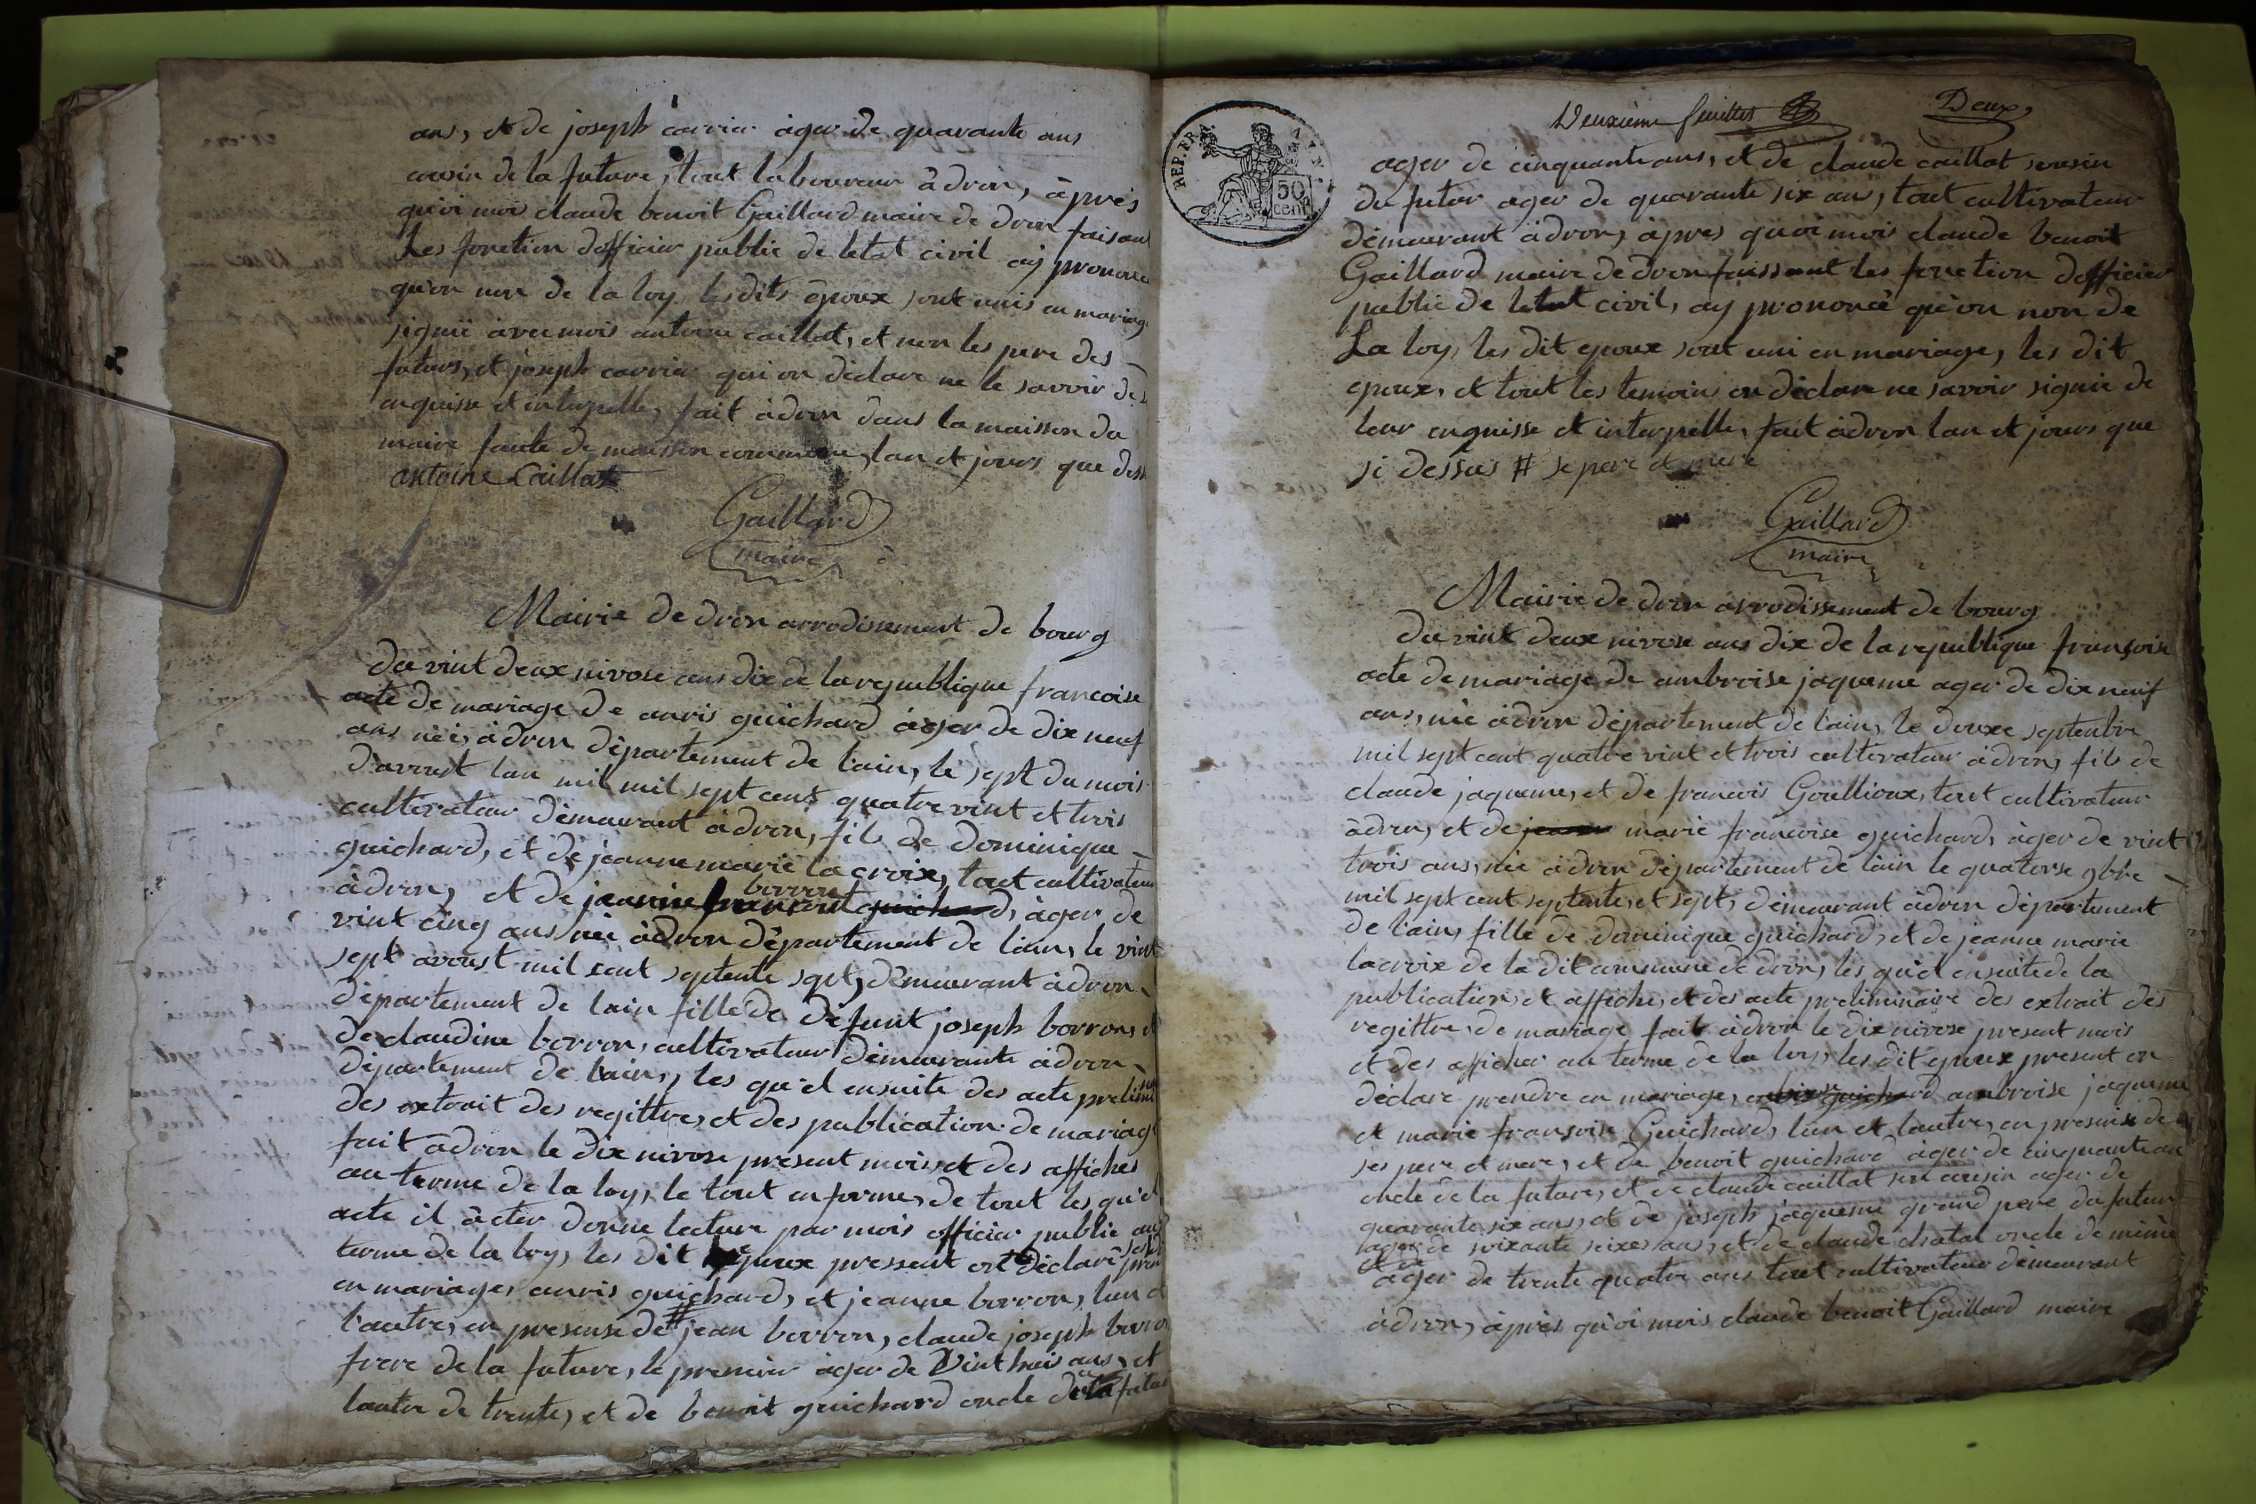 ans, et de joseph carrier àger de quarante ans
cousin de la future, tout laboureur àdron, àprés
quoi moi claude benoit Gaillard maire de dron faisant
Les fonction dofficier public de letat civil ay prononcé
qu'on non de la loy les dits époux sont unis en mariage
signié avec mois antoine caillat, et non les pere des
futurs, et joseph carrier qui on déclare ne le savoir de
enquisse et interpelle, fait àdron dans la maisson du
maire faute de maisson commune, lan et jours que dess
antoine Caillat
Gaillard
maire
Mairie de dron arrodissement de bourg
du vint deux nivose ans dix de la republique francoise
acte de mariage de anris guichard àger de dix neuf
ans néé, àdron département de l'ain, le sept du mois
davoust lan mil mil sept cent quatre vint et trois
cultivateur démeurant àdron, fils de dominique
guichard, et de jeanne marie la croix, tout cultivateur
àdron, et de jeanne borron guichard, àger de
vint cinq ans née àdron département de l'ain, le vint
sept avoust mil cent septente sept, démeurant àdron
département de lain fille de defunt joseph borron, et
de claudine borron, cultivateur démeurante àdron
département de l'ain, les qu'el ensuite des acte prelimi
des extrait des regittre, et des publication de mariage
fait àdron le dix nivose present mois, et des affiches
au terme de la loy, le tout en forme, de tout les qu'el
acte il à éter donne lecture par mois officier public au
terme de la loy, les dit époux pressent ont déclaré pren
en mariage, anris guichard, et jeanne borron, lun et
l'autre, en presense de # jean borron, claude joseph borron
frere de la future, le premier àger de vint huis ans, et
lautre de trente, et de benoit guichard oncle du futur
Deuxième feuillet Deux
ager de cinquante ans, et de claude caillat cousin
du futur ager de quarante six ans, tout cultivateur
démeurant àdron, àpres quoi mois claude benoit
Gaillard maire de dron faissant les fonction dofficier
public de letat civil, ay prononcé qu'on non de
La loy, les dit epoux sont uni en mariage, les dit
epoux, et tout les temoins on déclare ne savoir signie de
leur enquisse et interpelle, fait àdron lan et jours que
si dessus # se pere et mere
REP. FRA
50
cent
Gaillard
maire
Mairie de dron arrodissement de bourg
du vint deux nivose ans dix de la republique françoise
acte de mariage de ambroise jaqueme ager de dix neuf
ans, née àdron département de l'ain, le douxe septenbre
mil sept cent quatre vint et trois cultivateur àdron, fils de
claude jaqueme, et de francois Goullioux, tout cultivateur
àdron, et de marie francoise guichard, àger de vint
trois ans, née àdron département de l'ain le quatorse 9bre
mil sept cent septente, et sept, démeurant àdron département
de l'ain, fille de dominique guichard, et de jeanne marie
lacroix de la dit commune de dron, les qu'el ensuite de la
publication, et affiche, et des acte preliminaire des extrait des
regittre, de mariage fait àdron le dix nivose present mois
et des afficher au terme de la loy, les dit epoux present on
déclare prendre en mariage, ambroise jaqueme
et marie françoise Guichard, lun et lautre, en presense de
ses pere et mere, et de benoit guichard àger de cinquante an
oncle de la future, et de claude caillat son cousin ager de
quarante six ans, et de joseph jaqueme grand pere du futur
ager de soixante seixe ans, et de claude chatal oncle de même
àger de trente quatre ans tout cultivateur démeurant
àdron, àprès qu'oi mois claude benoit Gaillard maire